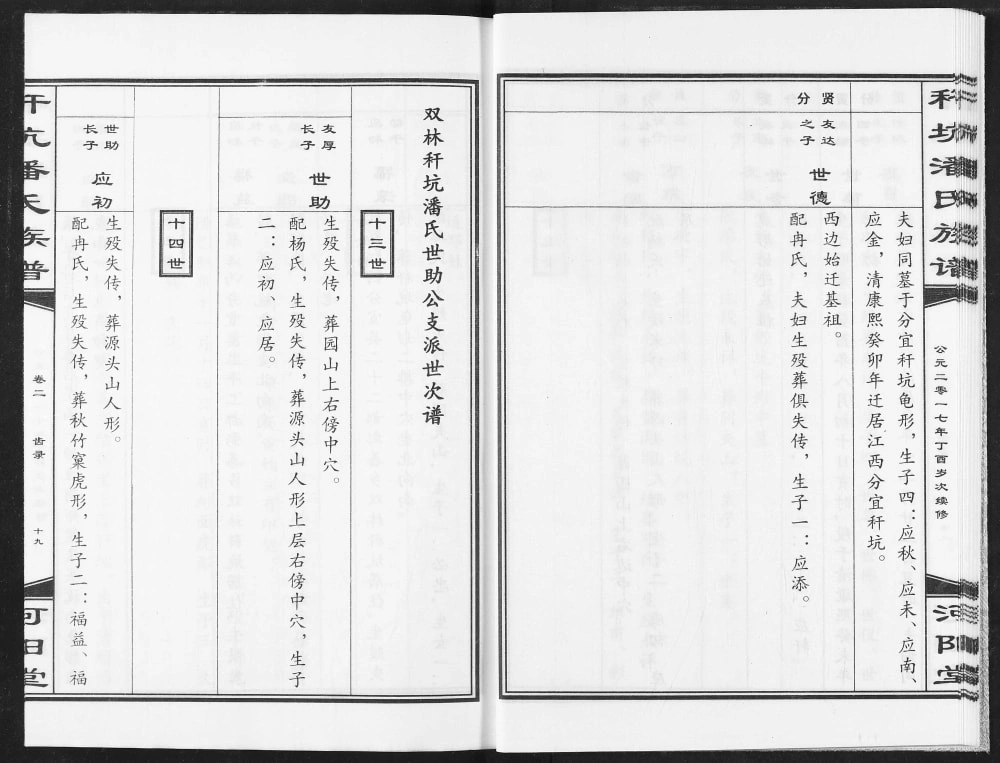 秆坑潘氏族谱
公元二零一七年丁酉岁次续修
河阳堂
夫妇同墓于分宜秆坑龟形，生子四：应秋、应未、应南、
应金，清康熙癸卯年迁居江西分宜秆坑。
贤友达
分之子
世德
西边始迁基祖。
配冉氏，夫妇生殁葬俱失传，生子一：应添。
双林秆坑潘氏世助公支派世次谱
十三世
友厚
长子
世助
生殁失传，葬园山上右傍中穴。
配杨氏，生殁失传，葬源头山人形上层右傍中穴，生子
二：应初、应居。
十四世
世助
长子
应初
生殁失传，葬源头山人形。
配冉氏，生殁失传，葬秋竹窠虎形，生子二：福益、福
秆坑潘氏族谱
卷二
齿录
十九
河阳堂